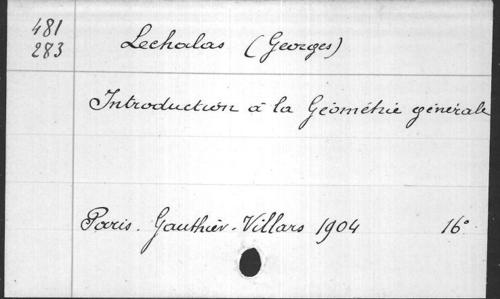 481
283
Lechalas (Georges)
Introduction à la Géométrie générale
Paris. Gauthier-Villars 1904 16°